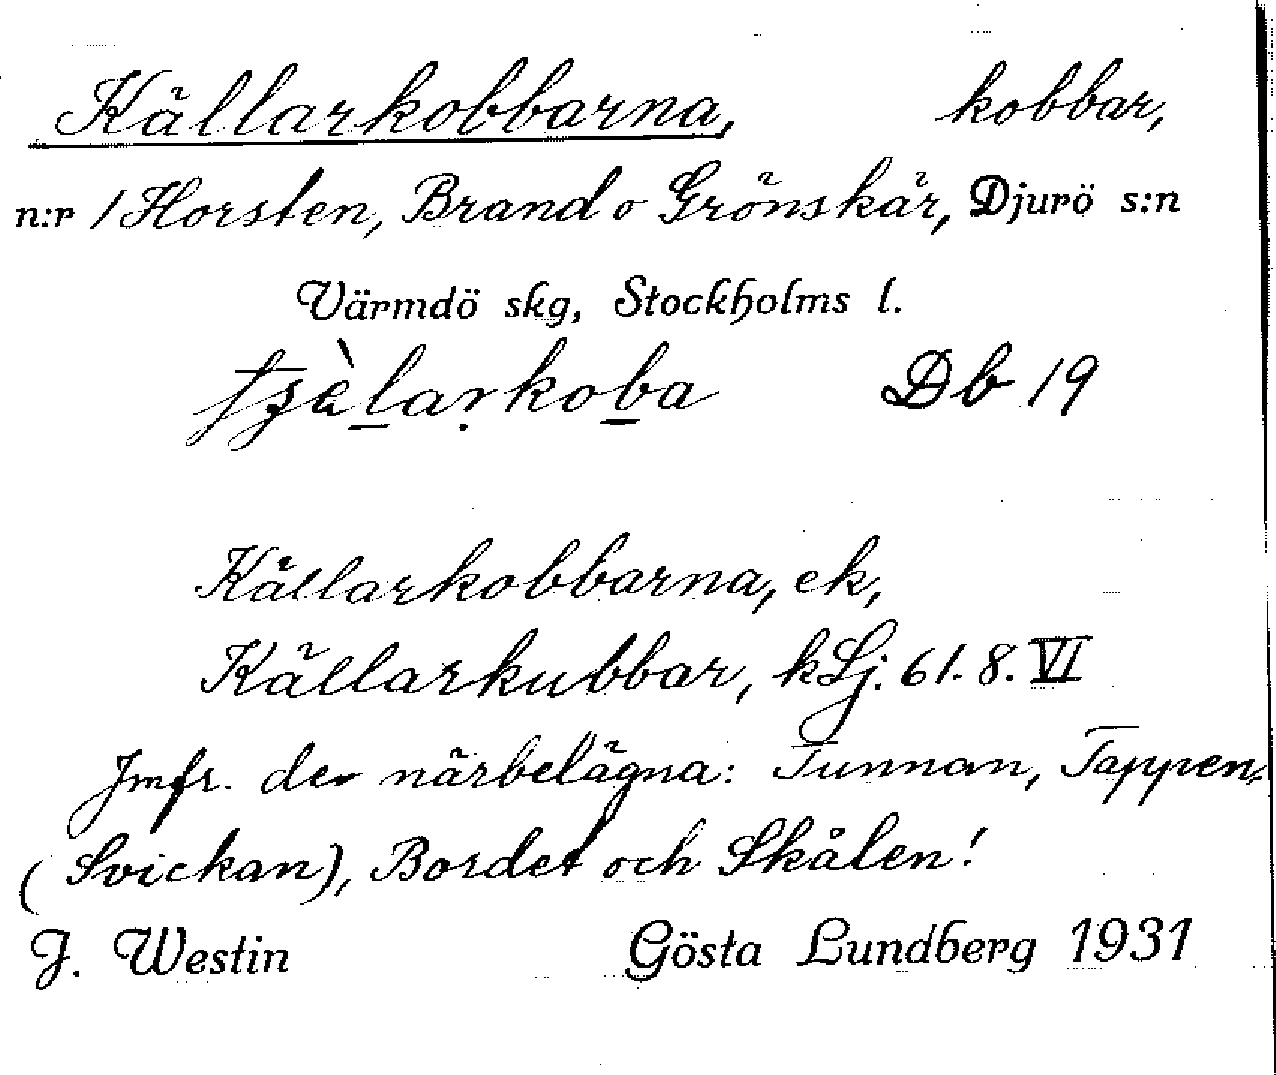 Källarkobbarna, kobbar,
n:r 1 Horsten, Brand o Grönskär, Djurö s:n
Värmdö skg, Stockholms l.
Db 19
Källarkobbarna, ek,
Källarkubbar, kLj. 61. 8. VI
Jmfr. de närbelägna: Tunnan, Tappen,
(Svickan), Bordet och Skålen!
J. Westin Gösta Lundberg 1931